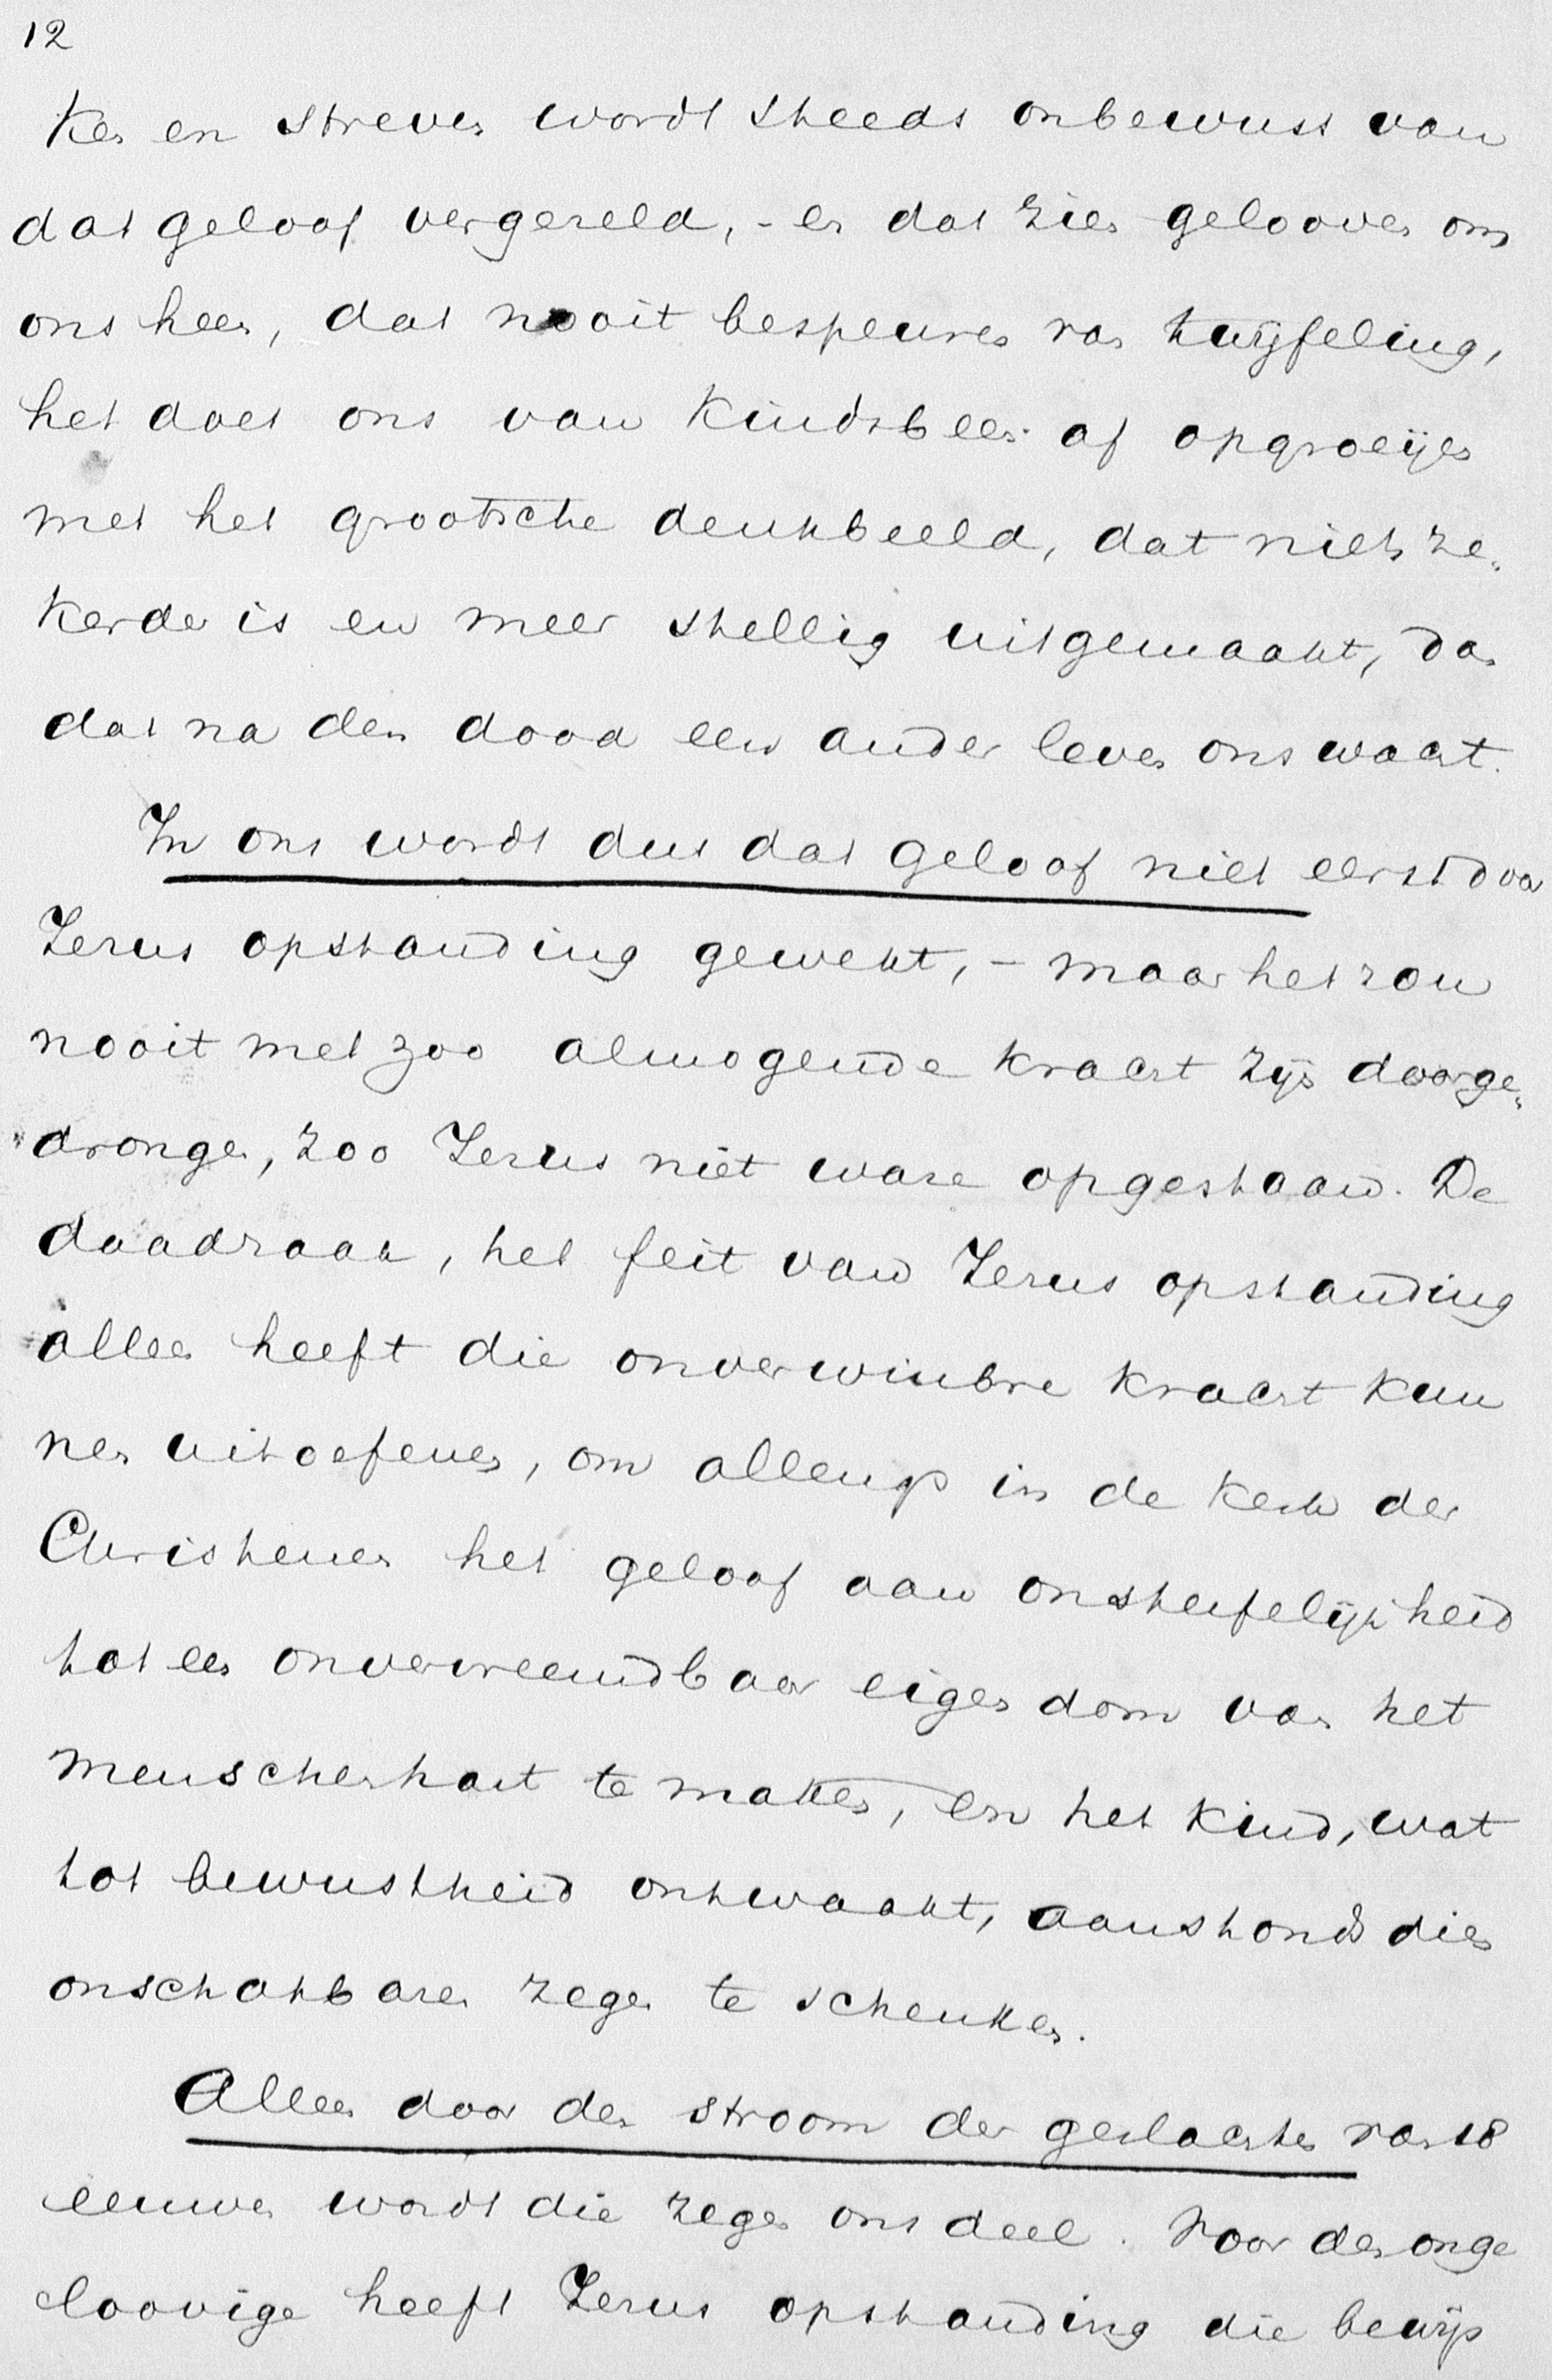 12
ken en streven wordt steeds onbewust van
dat geloof vergezeld, - en dat zien gelooven om
ons heen, dat nooit bespeuren van twijfeling,
het doet ons van kindsbeen af opgroeijen
met het grootsche denkbeeld, dat niets ze„
kerder is en meer stellig uitgemaakt, dan
dat na den dood een ander leven ons wacht.
In ons wordt dus dat geloof niet eerst door
Jezus opstanding gewekt, - maar het zou
nooit met zoo almogende kracht zijn doorge„
„drongen, zoo Jezus niet ware opgestaan. De
daadzaak, het feit van Jezus opstanding
alleen heeft die onverwinbre kracht kun
nen uitoefenen, om allengs in de kerk der
Christenen het geloof aan onsterfelijkheid
tot een onvervreemdbaar eigendom van het
menschenhart te maken, en het kind, wat
tot bewustheid ontwaakt, aanstonds dien
onschatbaren zegen te schenken.
Alleen door den stroom der geslachten van 18
eeuwen wordt die zegen ons deel. Voor den onge
loovige heeft Jezus opstanding die bewijs